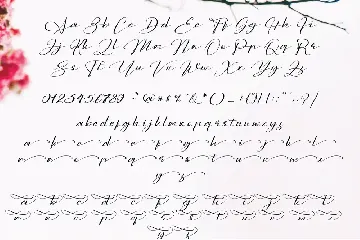 Aa Bb Cc Dd Ee Ff Gg Hh Ii
Jj Kk Ll Mm Nn Oo Pp Qq Rr
Ss Tt Uu Vv Ww Xx Yy Zz
a b c d e f g h i j k l m n o p q r s t u v w x y z
a b c d e f g h i j k l
m n o p q r s t u v w x
y z
a b c d e f g h i j k l
m n o p q r s t u v w x
y z